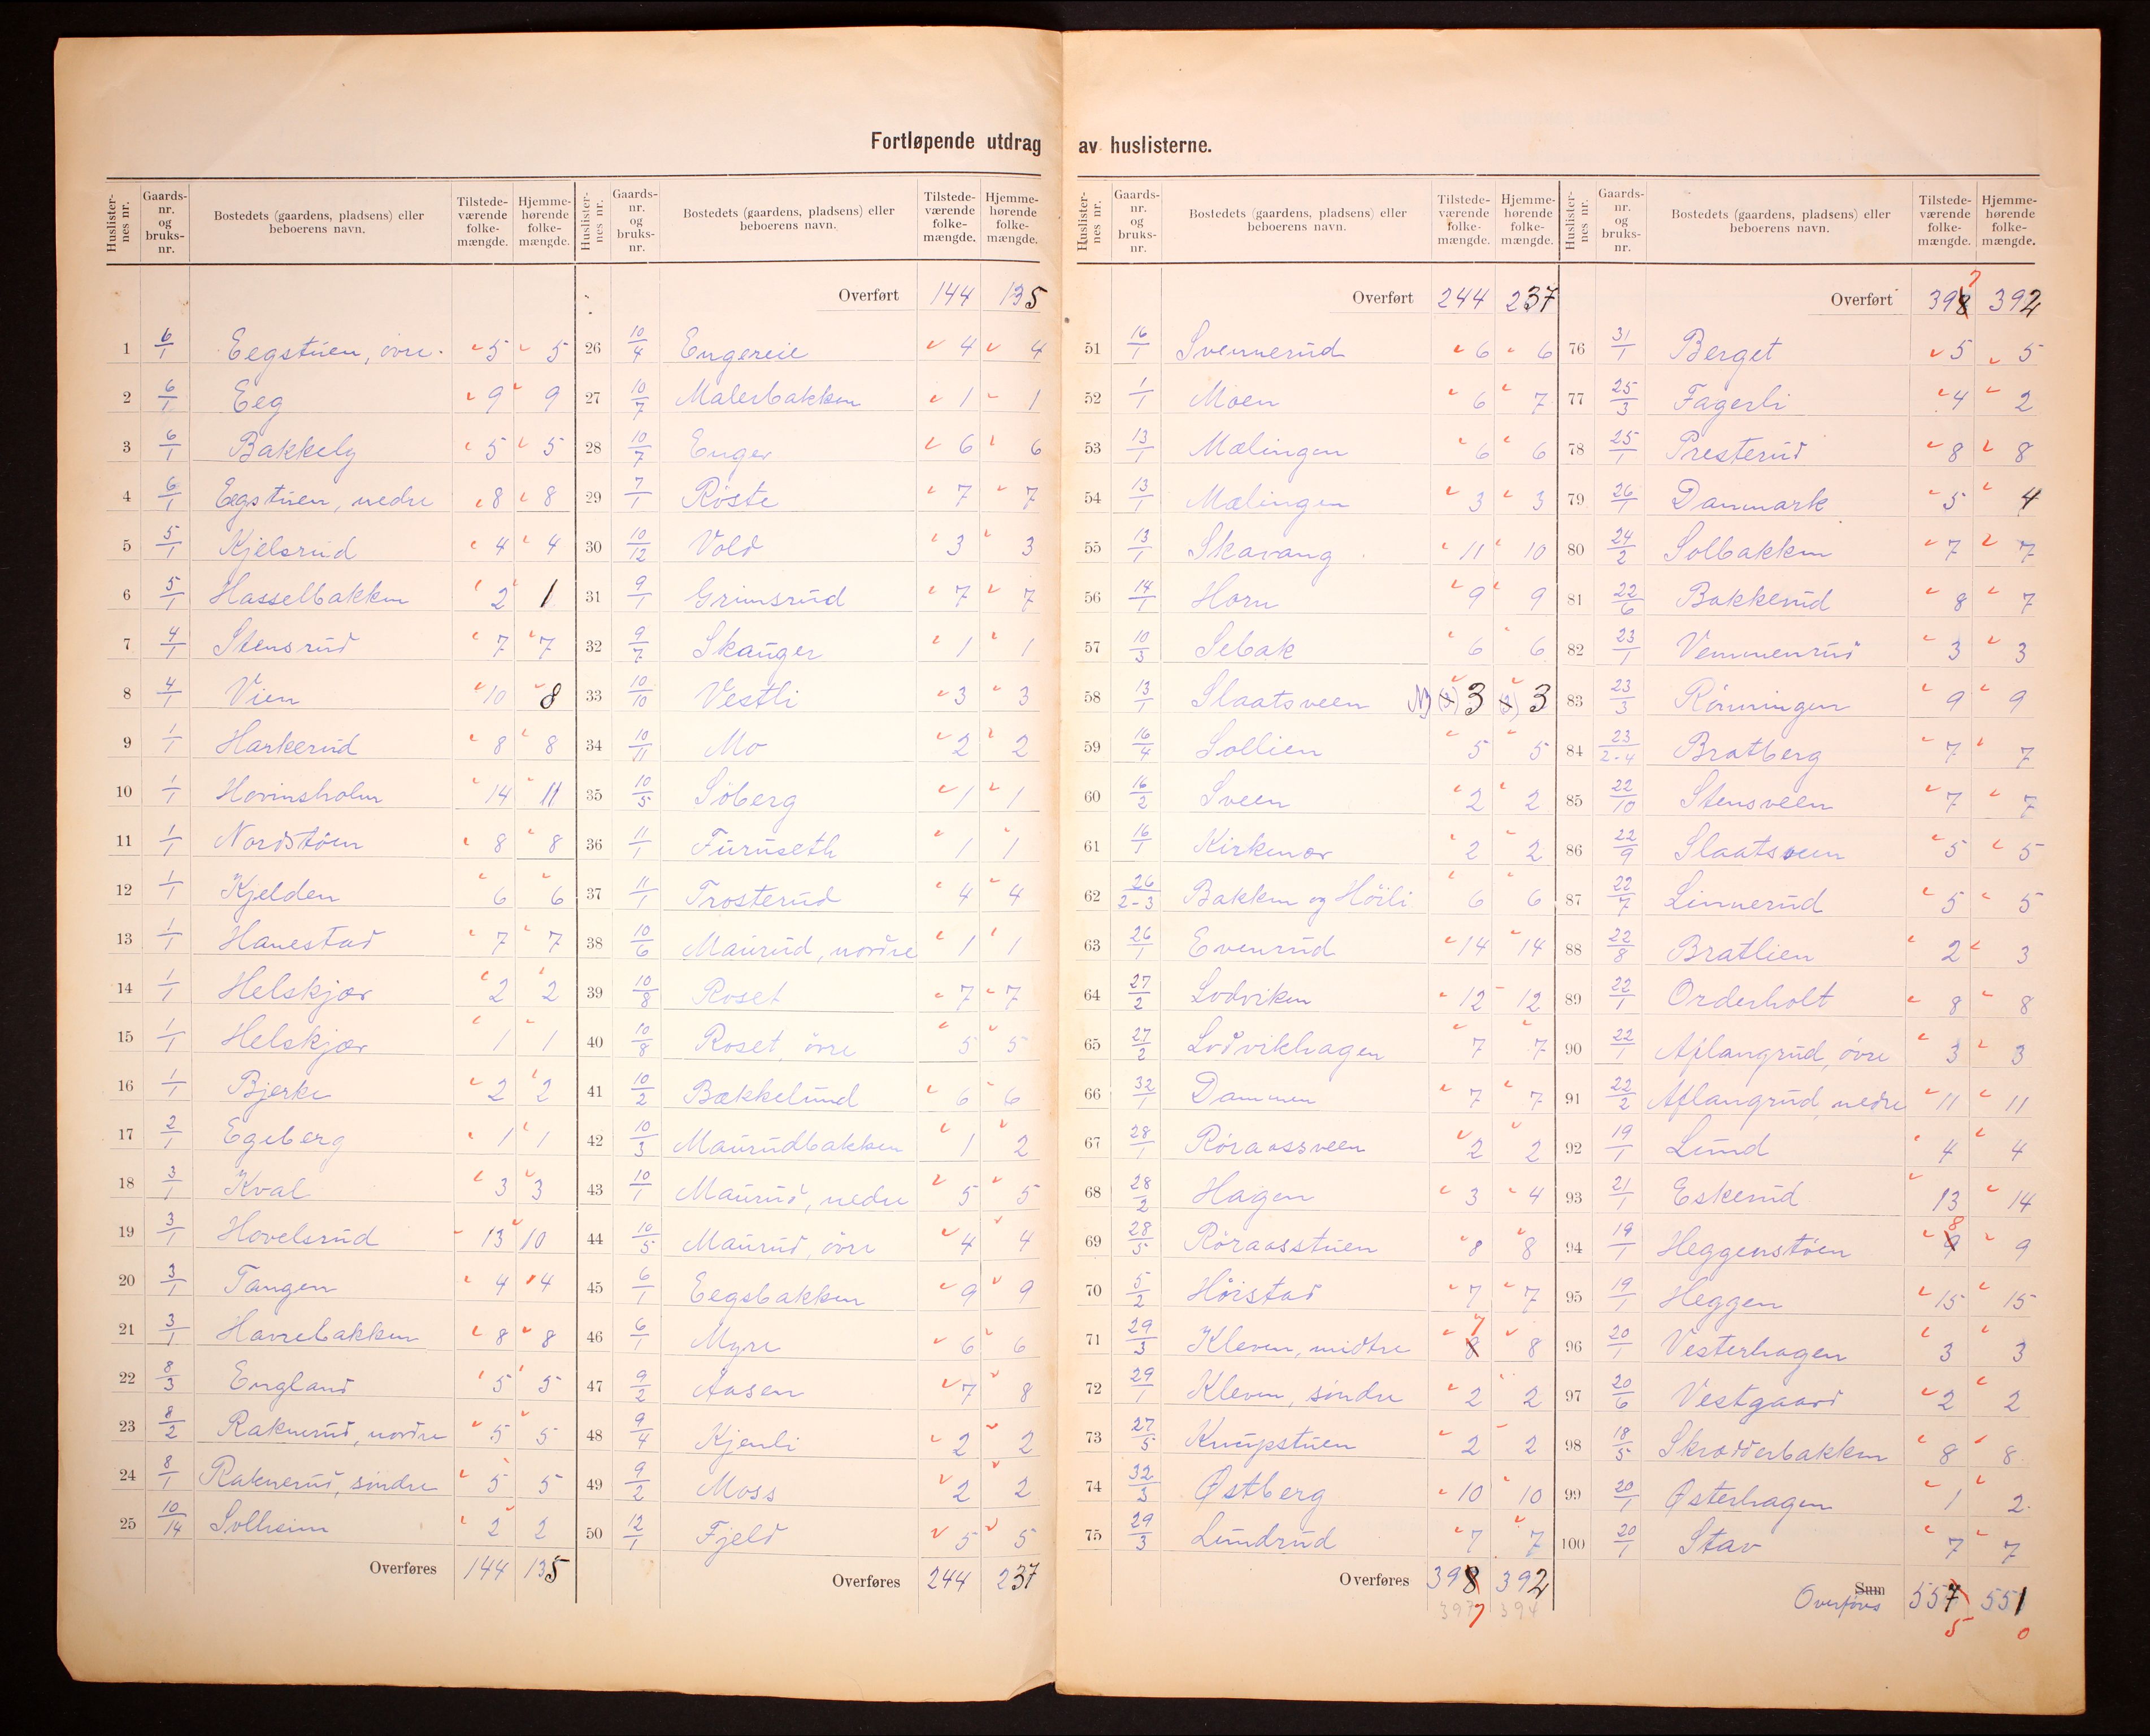 Fortløpende utdrag av huslisterne.
Huslister-nes nr. | Gaards-nr. og bruks-nr. | Bostedets (gaardens, pladsens) eller beboerens navn. | Tilstede-værende folke-mængde. | Hjemme-hørende folke-mængde.
1 6/1 Eegstuen, övre. 5 5
2 6/1 Eeg 9 9
3 6/1 Bakkely 5 5
4 6/1 Eegstuen, nedre 8 8
5 5/1 Kjelsrud 4 4
6 5/1 Hasselbakken 2 1
7 4/1 Stensrud 7 7
8 4/1 Vien 10 8
9 1/1 Harkerud 8 8
10 1/1 Hovinsholm 14 11
11 1/1 Nordstöen 8 8
12 1/1 Kjelden 6 6
13 1/1 Hanestad 7 7
14 1/1 Helskjær 2 2
15 1/1 Helskjær 1 1
16 1/1 Bjerke 2 2
17 2/1 Egeberg 1 1
18 3/1 Kval 3 3
19 3/1 Hovelsrud 13 10
20 3/1 Tangen 4 4
21 3/1 Havrebakken 8 8
22 8/3 England 5 5
23 8/2 Raknerud, nordre 5 5
24 8/1 Raknerud, söndre 5 5
25 10/14 Solheim 2 2
Overføres 144 135
Huslister-nes nr. | Gaards-nr. og bruks-nr. | Bostedets (gaardens, pladsens) eller beboerens navn. | Tilstede-værende folke-mængde. | Hjemme-hørende folke-mængde.
Overført 144 135
26 10/4 Engereie 4 4
27 10/7 Malerbakken 1 1
28 10/7 Enger 6 6
29 7/1 Röste 7 7
30 10/12 Vold 3 3
31 9/1 Grimsrud 7 7
32 9/7 Skauger 1 1
33 10/10 Vestli 3 3
34 10/11 Mo 2 2
35 10/5 Söberg 1 1
36 11/1 Furuseth 1 1
37 11/1 Trosterud 4 4
38 10/6 Maurud, nordre 1 1
39 10/8 Roset 7 7
40 10/8 Roset, övre 5 5
41 10/2 Bækkelund 6 6
42 10/3 Maurudbakken 1 2
43 10/1 Maurud, nedre 5 5
44 10/5 Maurud, övre 4 4
45 6/1 Eegsbakken 9 9
46 6/1 Myre 6 6
47 9/2 Aasen 7 8
48 9/4 Kjenli 2 2
49 9/2 Moss 2 2
50 12/1 Fjeld 5 5
Overføres 244 237
Huslister-nes nr. | Gaards-nr. og bruks-nr. | Bostedets (gaardens, pladsens) eller beboerens navn. | Tilstede-værende folke-mængde. | Hjemme-hørende folke-mængde.
Overført 244 237
51 16/1 Svennerud 6 6
52 1/1 Moen 6 7
53 13/1 Mælingen 6 6
54 13/1 Mælingen 3 3
55 13/1 Skavang 11 10
56 14/1 Horn 9 9
57 10/3 Sebak 6 6
58 13/1 Slaatsveen 3 3
59 16/4 Sollien 5 5
60 16/2 Sveen 2 2
61 16/1 Kirkenær 2 2
62 26/2-3 Bakken og Höili 6 6
63 26/1 Evenrud 14 14
64 27/2 Lodviken 12 12
65 27/2 Lodvikhagen 7 7
66 32/1 Dammen 7 7
67 28/1 Röraassveen 2 2
68 28/2 Hagen 3 4
69 28/5 Röraasstuen 8 8
70 5/2 Höistad 7 7
71 29/3 Kleven, midtre 8 7 8
72 29/1 Kleven, söndre 2 2
73 27/5 Knupstuen 2 2
74 32/3 Østberg 10 10
75 29/3 Lundrud 7 7
Overføres 398 392
397 7 394
Huslister-nes nr. | Gaards-nr. og bruks-nr. | Bostedets (gaardens, pladsens) eller beboerens navn. | Tilstede-værende folke-mængde. | Hjemme-hørende folke-mængde.
Overført 398 7 392
76 31/1 Berget 5 5
77 25/3 Fagerli 4 2
78 25/1 Presterud 8 8
79 26/1 Danmark 5 4
80 24/2 Solbakken 7 7
81 22/6 Bakkerud 8 7
82 23/1 Vemmenrud 3 3
83 23/3 Rönningen 9 9
84 23/2-4 Bratberg 7 7
85 22/10 Stensveen 7 7
86 22/9 Slaatsveen 5 5
87 22/7 Linnerud 5 5
88 22/8 Bratlien 2 3
89 22/1 Orderholt 8 8
90 22/1 Aflangrud, övre 3 3
91 22/2 Aflangrud, nedre 11 11
92 19/1 Lund 4 4
93 21/1 Eskerud 13 14
94 19/1 Heggenstöen 9 8 9
95 19/1 Heggen 15 15
96 20/1 Vesterhagen 3 3
97 20/6 Vestgaard 2 2
98 18/5 Skrædderbakken 8 8
99 20/1 Østerhagen 1 2
100 20/1 Stav 7 7
Sum
Overføres 557 551
5 0